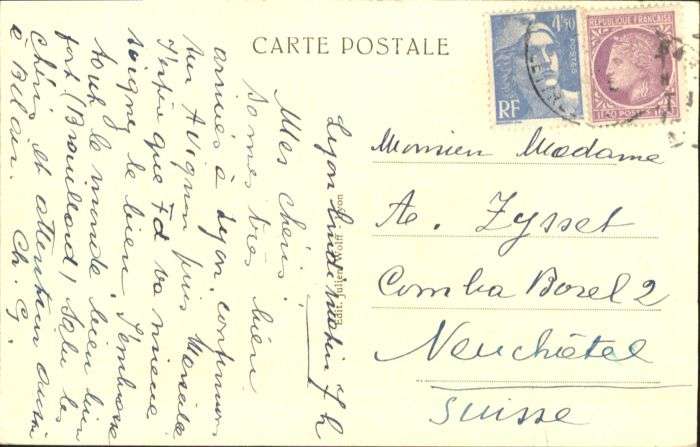 CARTE POSTALE
4F50
POSTES
RF
REPUBLIQUE FRANÇAISE
Edit. Julien Wolff Lyon
Lyon lundi matin 7 h
Mes chéris!
Somes très bien
arrivés à Lyon, continuons
sur Avignon puis Marseille
J'espère que va mieux
soigne le bien. J'embrasse
tout le monde bien bien
fort (Brouillard) Salu les
chéris et attention aussi
à Bilair. Ch. G.
Monsieur Madame
A. Zysset
Comba Borel 2
Neuchâtel
Suisse